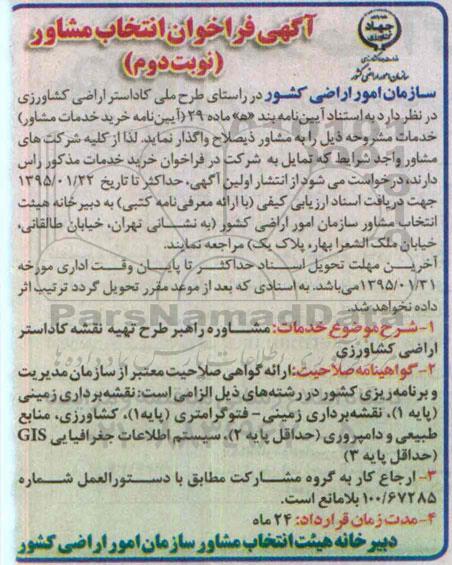 آگهی فراخوان انتخاب مشاور
(نوبت دوم)
جهاد
سازمان امور اراضی کشور
سازمان امور اراضی کشور در راستای طرح ملی کاداستر اراضی کشاورزی
در نظر دارد به استناد آیین‌نامه بند «هـ» ماده ۲۹ (آیین‌نامه خرید خدمات مشاور)
خدمات مشروحه ذیل را به مشاور ذیصلاح واگذار نماید. لذا از کلیه شرکت های
مشاور واجد شرایط که تمایل به شرکت در فراخوان خرید خدمات مذکور راس
دارند، درخواست می شود از انتشار اولین آگهی، حداکثر تا تاریخ ۱۳۹۵/۰۱/۲۲
جهت دریافت اسناد ارزیابی کیفی (با ارائه معرفی‌نامه کتبی) به دبیرخانه هیئت
انتخاب مشاور سازمان امور اراضی کشور (به نشانی تهران، خیابان طالقانی،
خیابان ملک الشعرا بهار، پلاک یک) مراجعه نمایند.
آخرین مهلت تحویل اسناد حداکثر تا پایان وقت اداری مورخه
۱۳۹۵/۰۱/۳۱ می‌باشد. به اسنادی که بعد از موعد مقرر تحویل گردد ترتیب اثر
داده نخواهد شد.
ParsNamadData
۱- شرح موضوع خدمات: مشاوره راهبر طرح تهیه نقشه کاداستر
اراضی کشاورزی
۲- گواهینامه صلاحیت: ارائه گواهی صلاحیت معتبر از سازمان مدیریت
و برنامه‌ریزی کشور در رشته‌های ذیل الزامی است: نقشه‌برداری زمینی
(پایه ۱)، نقشه‌برداری زمینی - فتوگرامتری (پایه۱)، کشاورزی، منابع
طبیعی و دامپروری (حداقل پایه ۲)، سیستم اطلاعات جغرافیایی GIS
(حداقل پایه ۳)
۳- ارجاع کار به گروه مشارکت مطابق با دستورالعمل شماره
۱۰۰/۶۷۲۸۵ بلامانع است.
۴- مدت زمان قرارداد: ۲۴ ماه
دبیرخانه هیئت انتخاب مشاور سازمان امور اراضی کشور